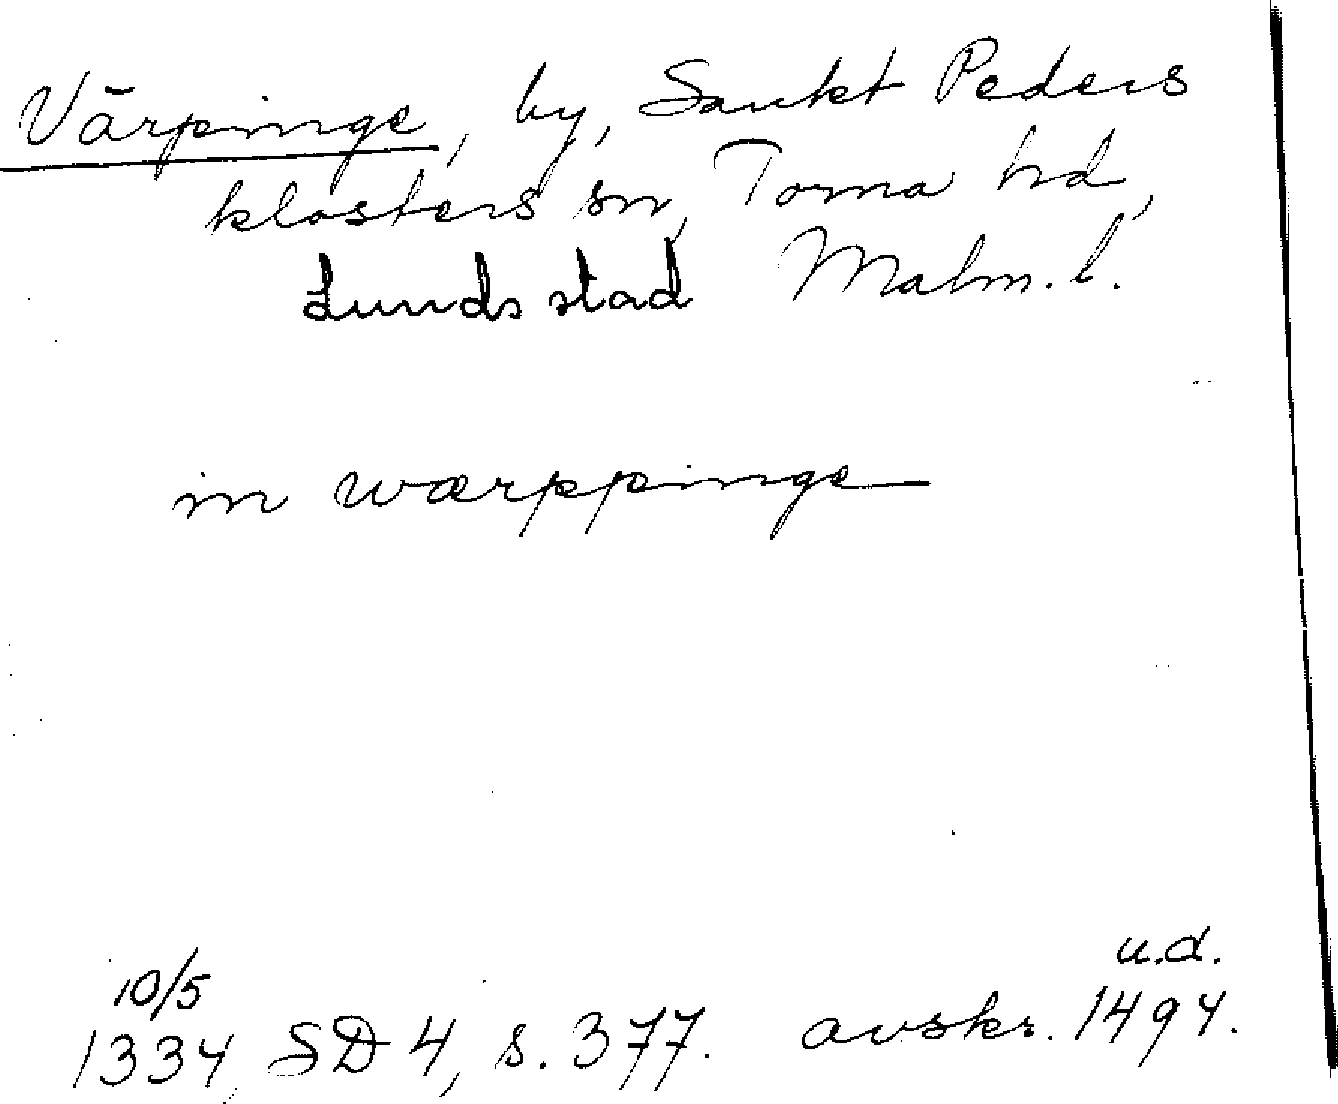 Värpinge, by, Sankt Peders
klosters sn, Torna hd,
Lunds stad Malm. l.
in wærppinge
10/5 u.d.
1334 SD 4, s. 377. avskr. 1494.